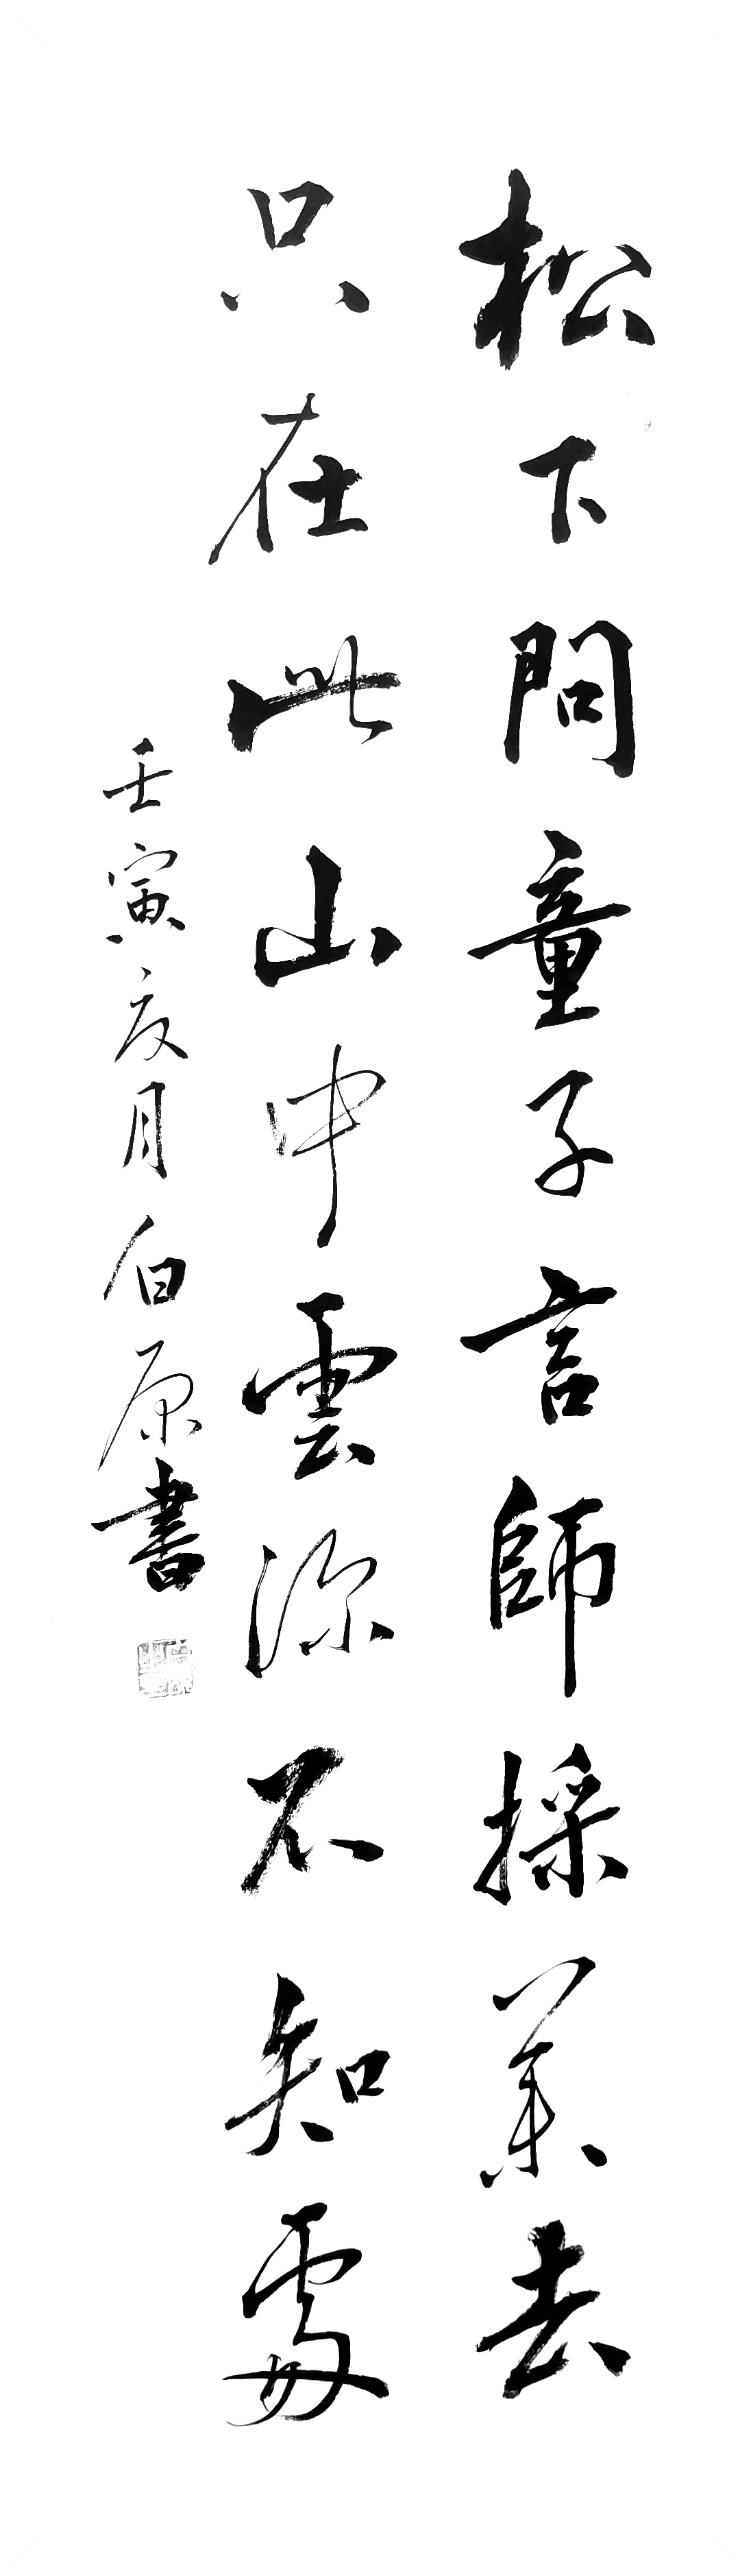 松下問童子言師採藥去
只在此山中雲深不知處
壬寅夜月白原書